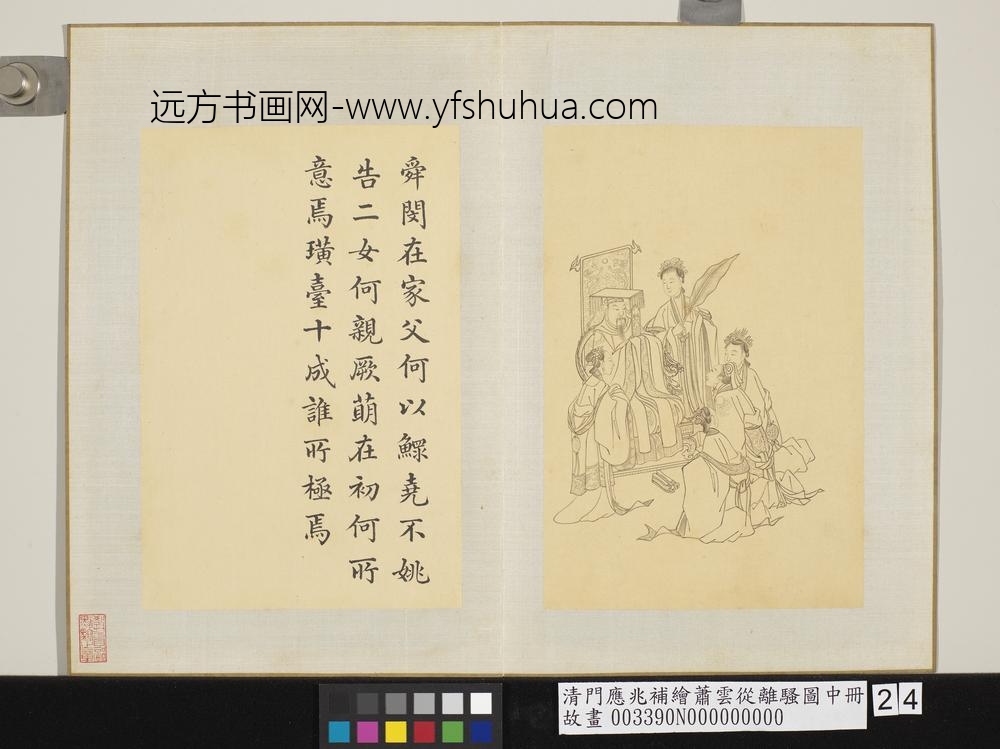 远方书画网-www.yfshuhua.com
舜閔在家父何以鱞堯不姚
告二女何親厥萌在初何所
意焉璜臺十成誰所極焉
清門應兆補繪蕭雲從離騷圖中冊
故畫 003390N000000000
24